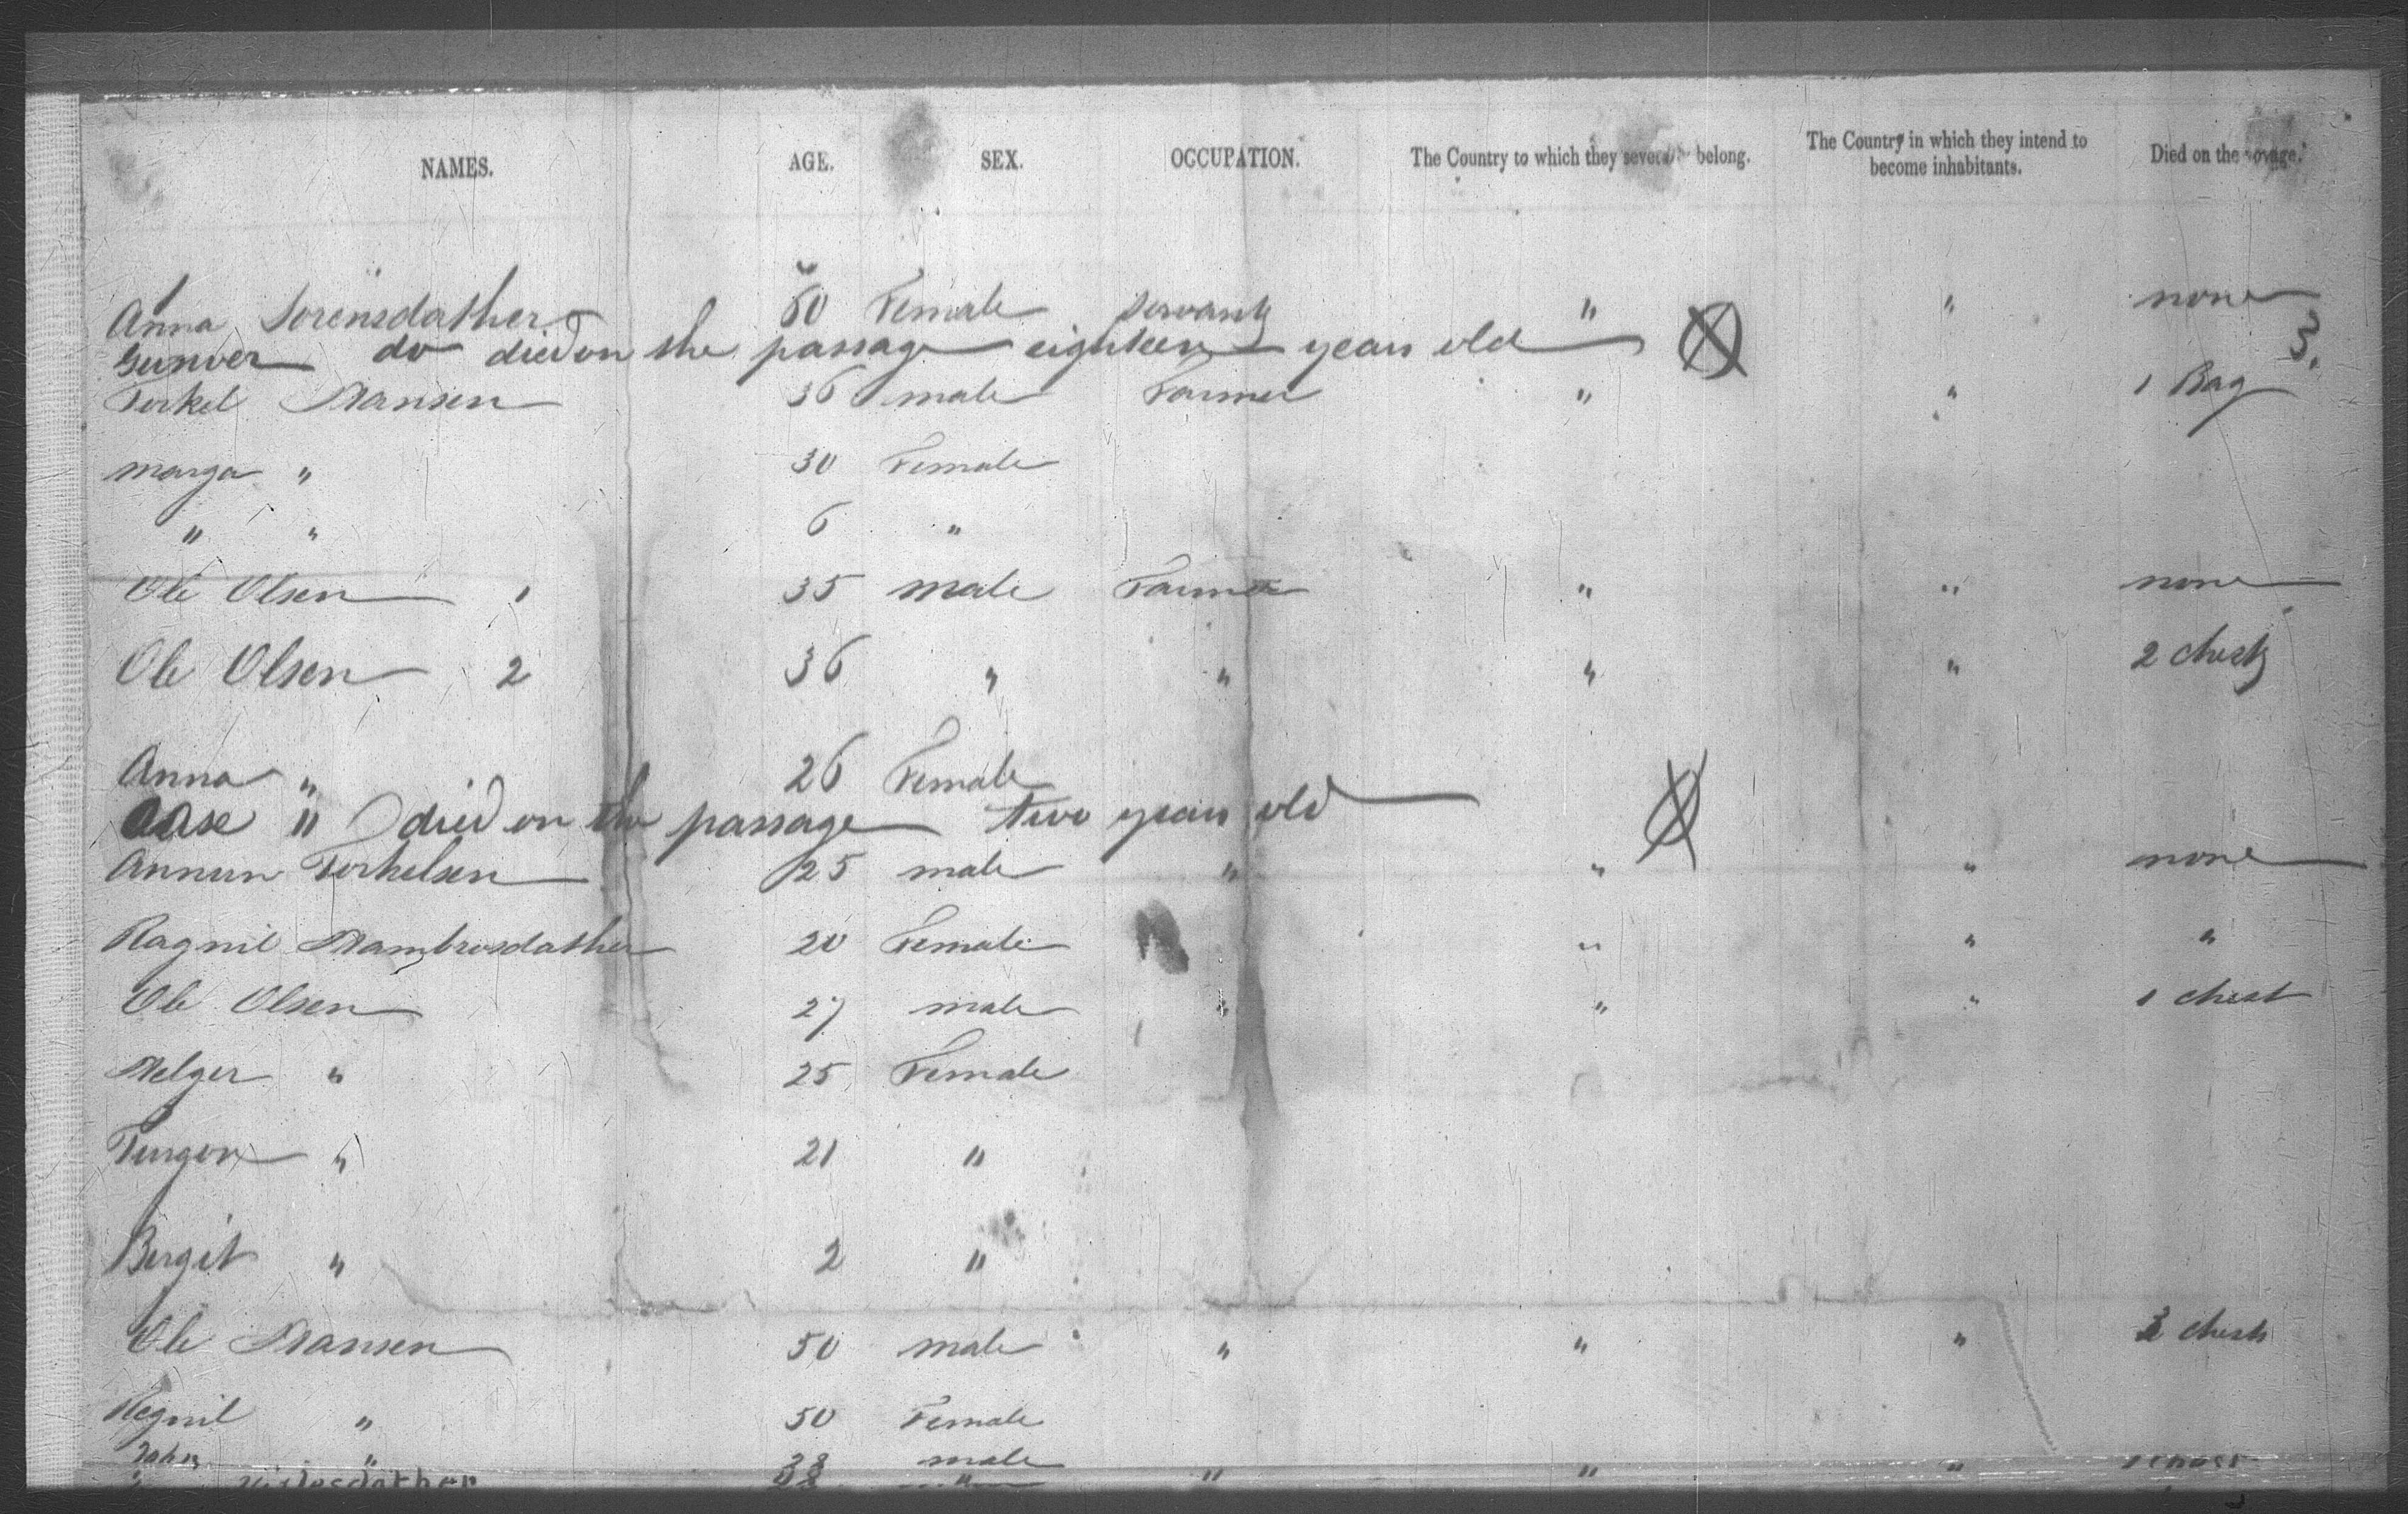 NAMES. AGE. SEX. OCCUPATION. The Country to which they several belong. The Country in which they intend to become inhabitants. Died on the voyage.
Anna Sorensdather 50 Female servant " " none
3.
Gunver do died on the passage eighteen years old
Terkel Hansen 36 male Farmer " " 1 Bag
Marga " 30 Female
" " 6 "
Ole Olsen 1 35 male Farmer " " none
Ole Olsen 2 36 " " " " 2 chests
Anna " 26 Female
Aase " died on the passage two years old
Annun Terkelsen 25 male " " " none
Ragnil Hambrosdather 20 Female " " "
Ole Olsen 27 male " " " 1 chest
Helger " 25 Female
Turgon " 21 "
Bergit " 2 "
Ole Hansen 50 male " " " chests
Regnil " 50 Female
" male
" " " "